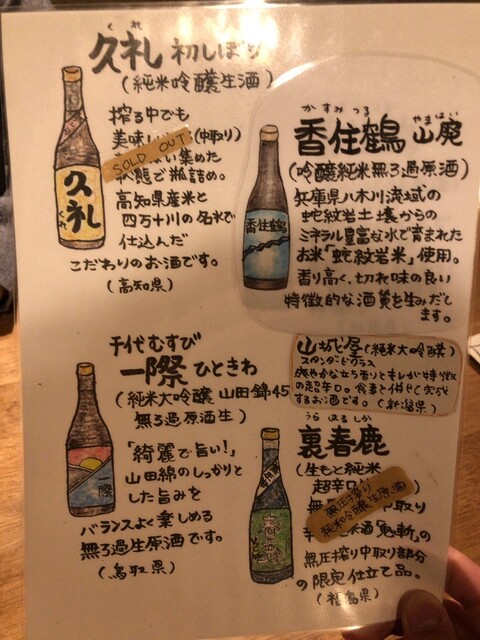 くれ
久礼 初しぼり
(純米吟醸生酒)
搾る中でも
美味しい (中取り)
SOLD OUT
い集めた
状態で瓶詰め。
高知県産米と
四万十川の名水で
仕込んだ
こだわりのお酒です。
(高知県)
久礼
くれ
かすみつる やまはい
香住鶴 山廃
(吟醸純米無ろ過原酒)
兵庫県八木川流域の
蛇紋岩土壌からの
ミネラル豊富な水で育まれた
お米「蛇紋岩米」使用。
香り高く、切れ味の良い
特徴的な酒質を生みだし
ます。
香住鶴
千代むすび
一際 ひときわ
(純米大吟醸 山田錦45
無ろ過原酒生)
「綺麗で旨い!」
山田錦のしっかりと
した旨みを
バランスよく楽しめる
無ろ過生原酒です。
(鳥取県)
一際
山城屋 (純米大吟醸)
スタンダードクラス
爽やかな立ち香とキレが特徴
の超辛口。食事と併せて完成
するお酒です。(新潟県)
うら はる しか
裏春鹿
(生もと純米
超辛口
無圧搾り
純米吟醸生原酒
中取り
酒「鬼斬」の
無圧搾り中取り部分
の限定仕立て品。
(福島県)